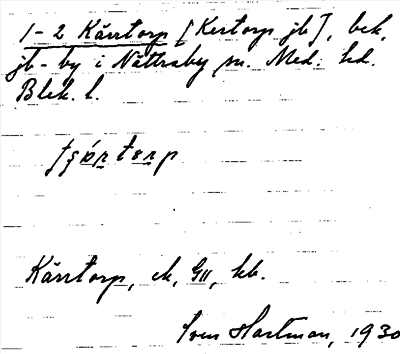 1-2 Kärrtorp [Kertorp jb], bek.
jb-by i Nättraby sn. Med. hd.
Blek. l.
Kärrtorp, ek, GII, hb.
Sven Hartman, 1930